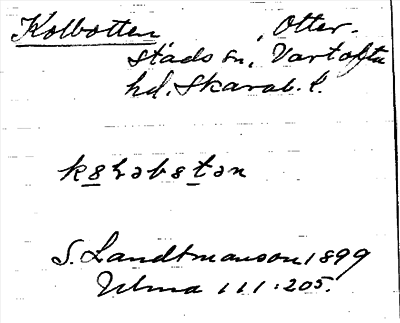 Kolbotten, Otter-
stads sn, Vartofta
hd. Skarab. l.
S. Landtmanson 1899
Ulma 111:205.